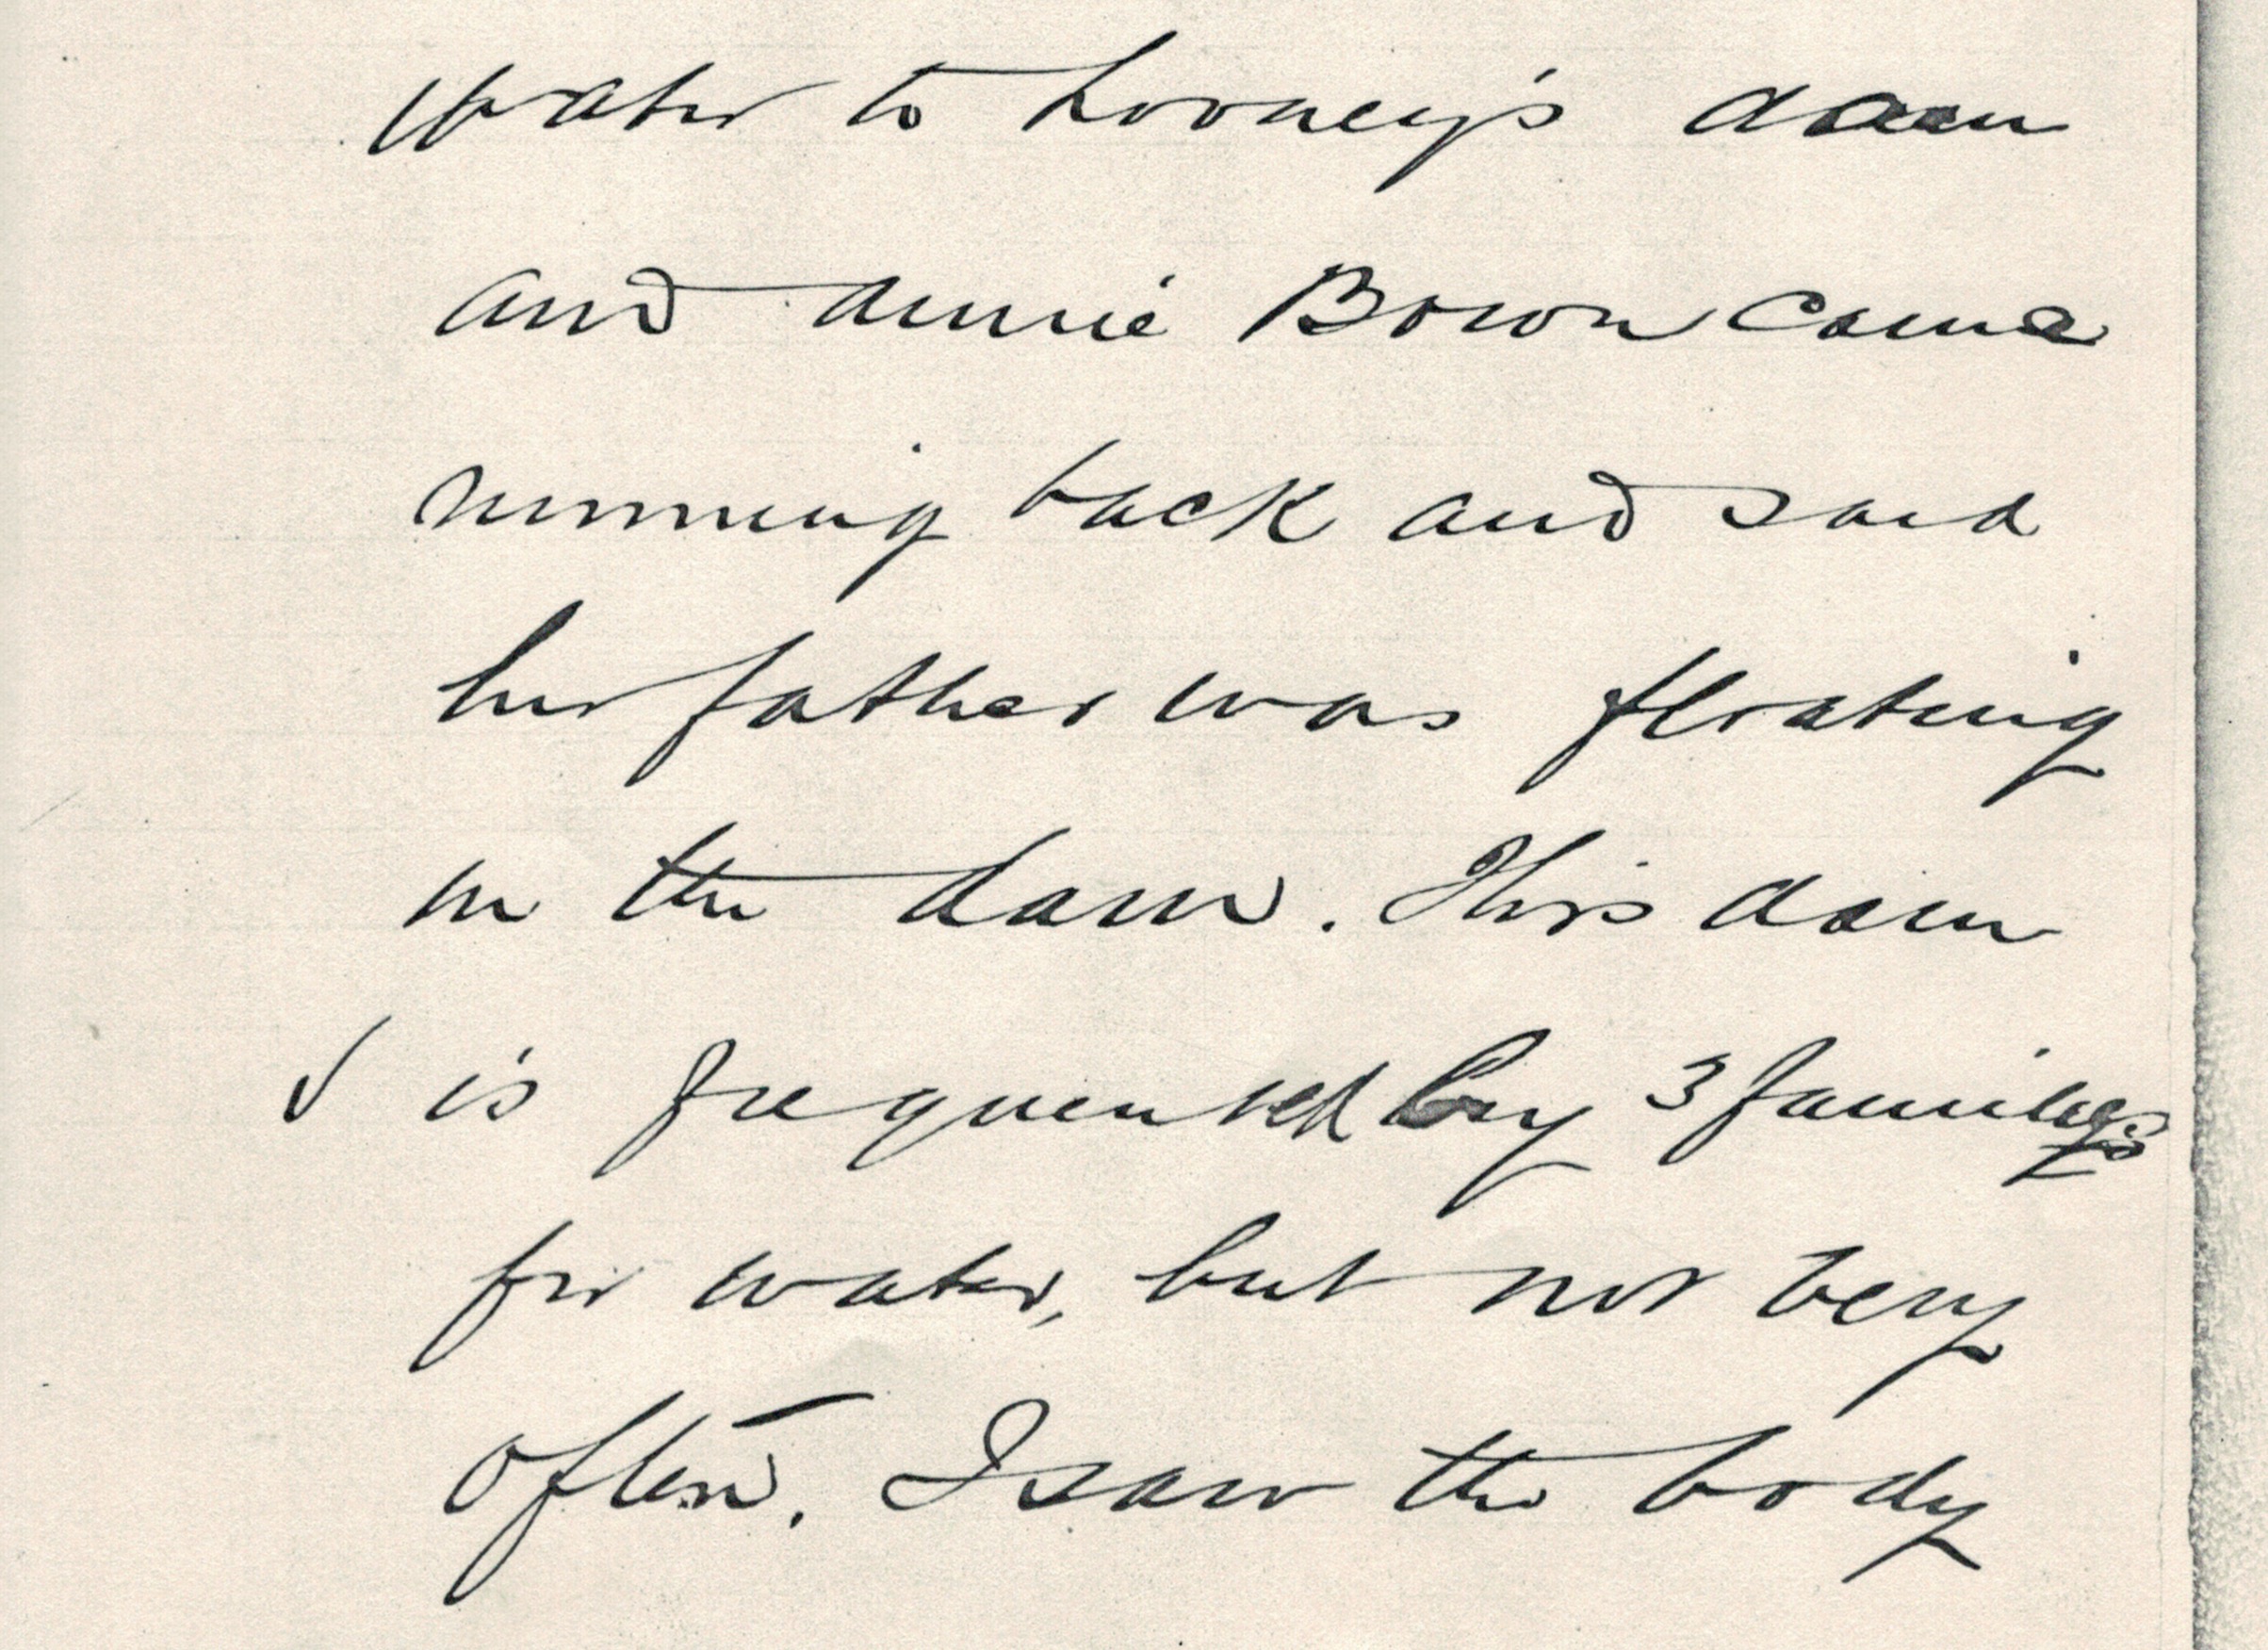 water to Looney's dam
and Annie Bown came
running back and said
her father was floating
in the dam. This dam
is frequented by 3 families
for water, but not very
often. I saw the body